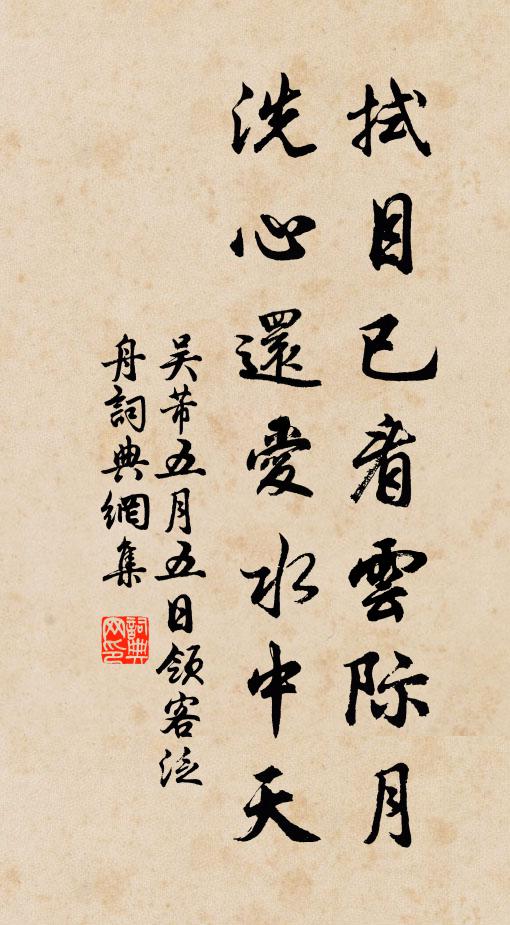 拭目已看雲際月
洗心還愛水中天
吴芾五月五日領客泛
舟詞典網集
詞典
网印